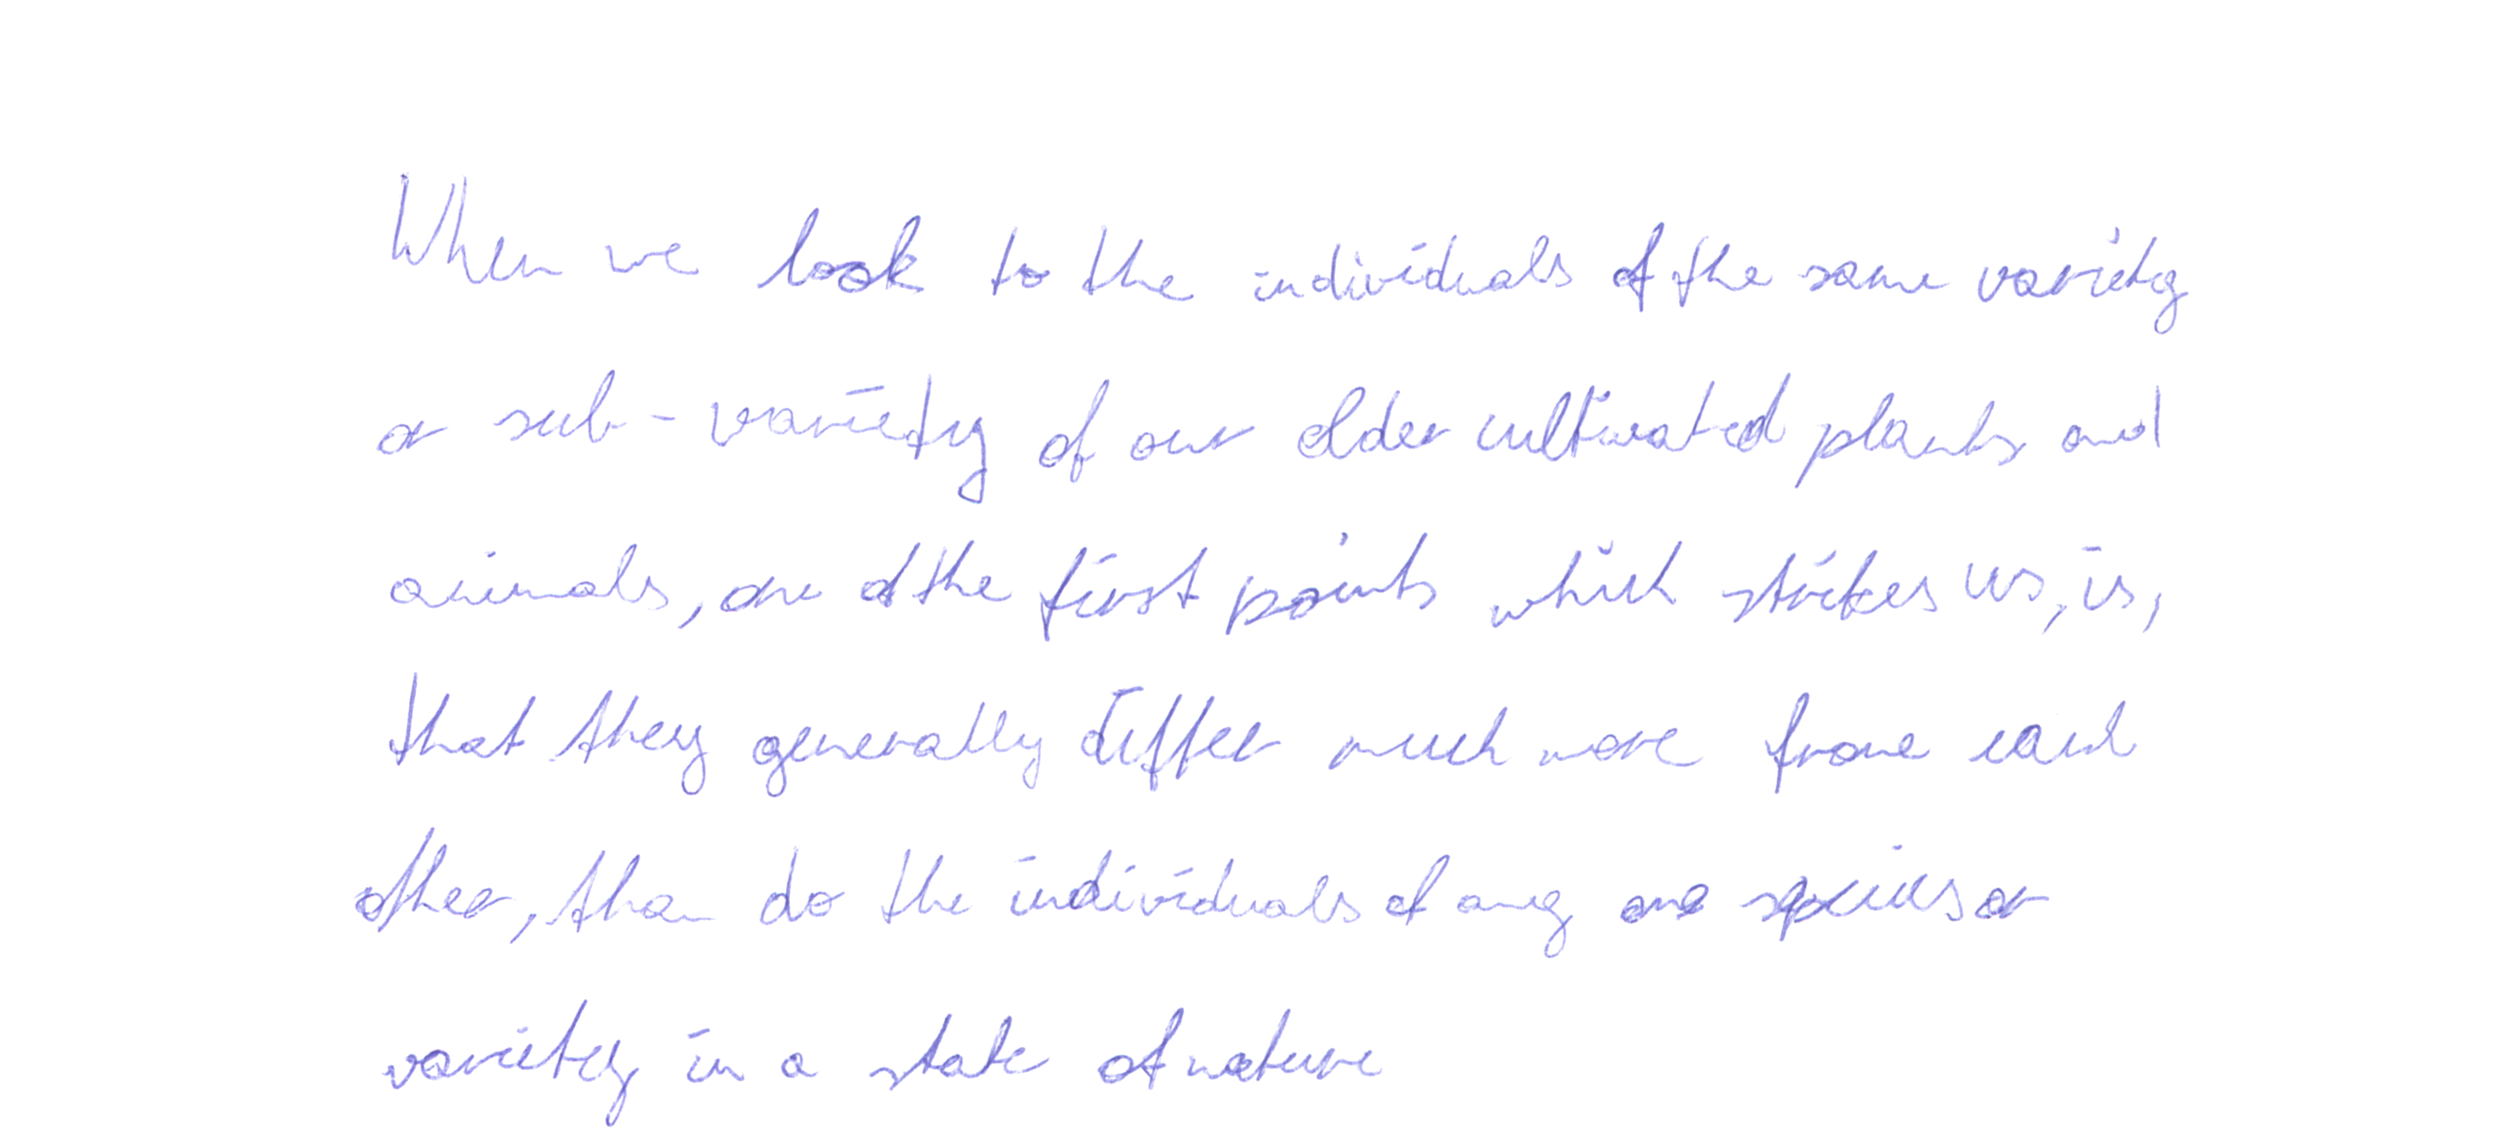 When we look to the individuals of the same variety
or sub-variety of our older cultivated plants and
animals, one of the first points which strikes us, is,
that they generally differ much more from each
other, than do the individuals of any one species or
variety in a state of nature